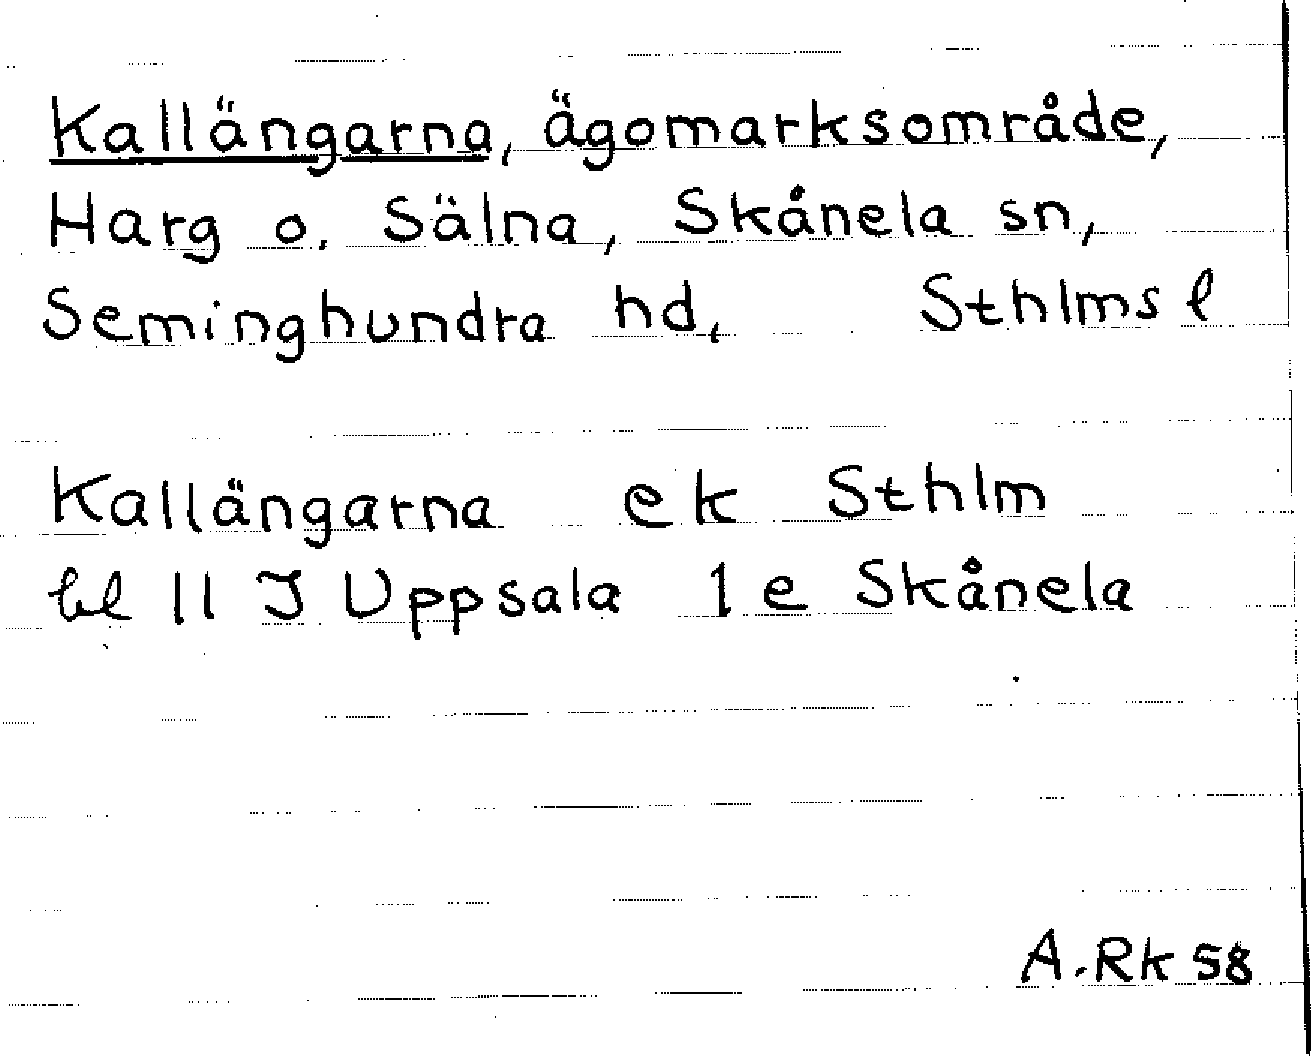 Kallängarna, ägomarksområde,
Harg o. Sälna, Skånela sn,
Seminghundra hd, Sthlms l
Kallängarna ek Sthlm
bl 11 I Uppsala 1 e Skånela
A.Rk 58